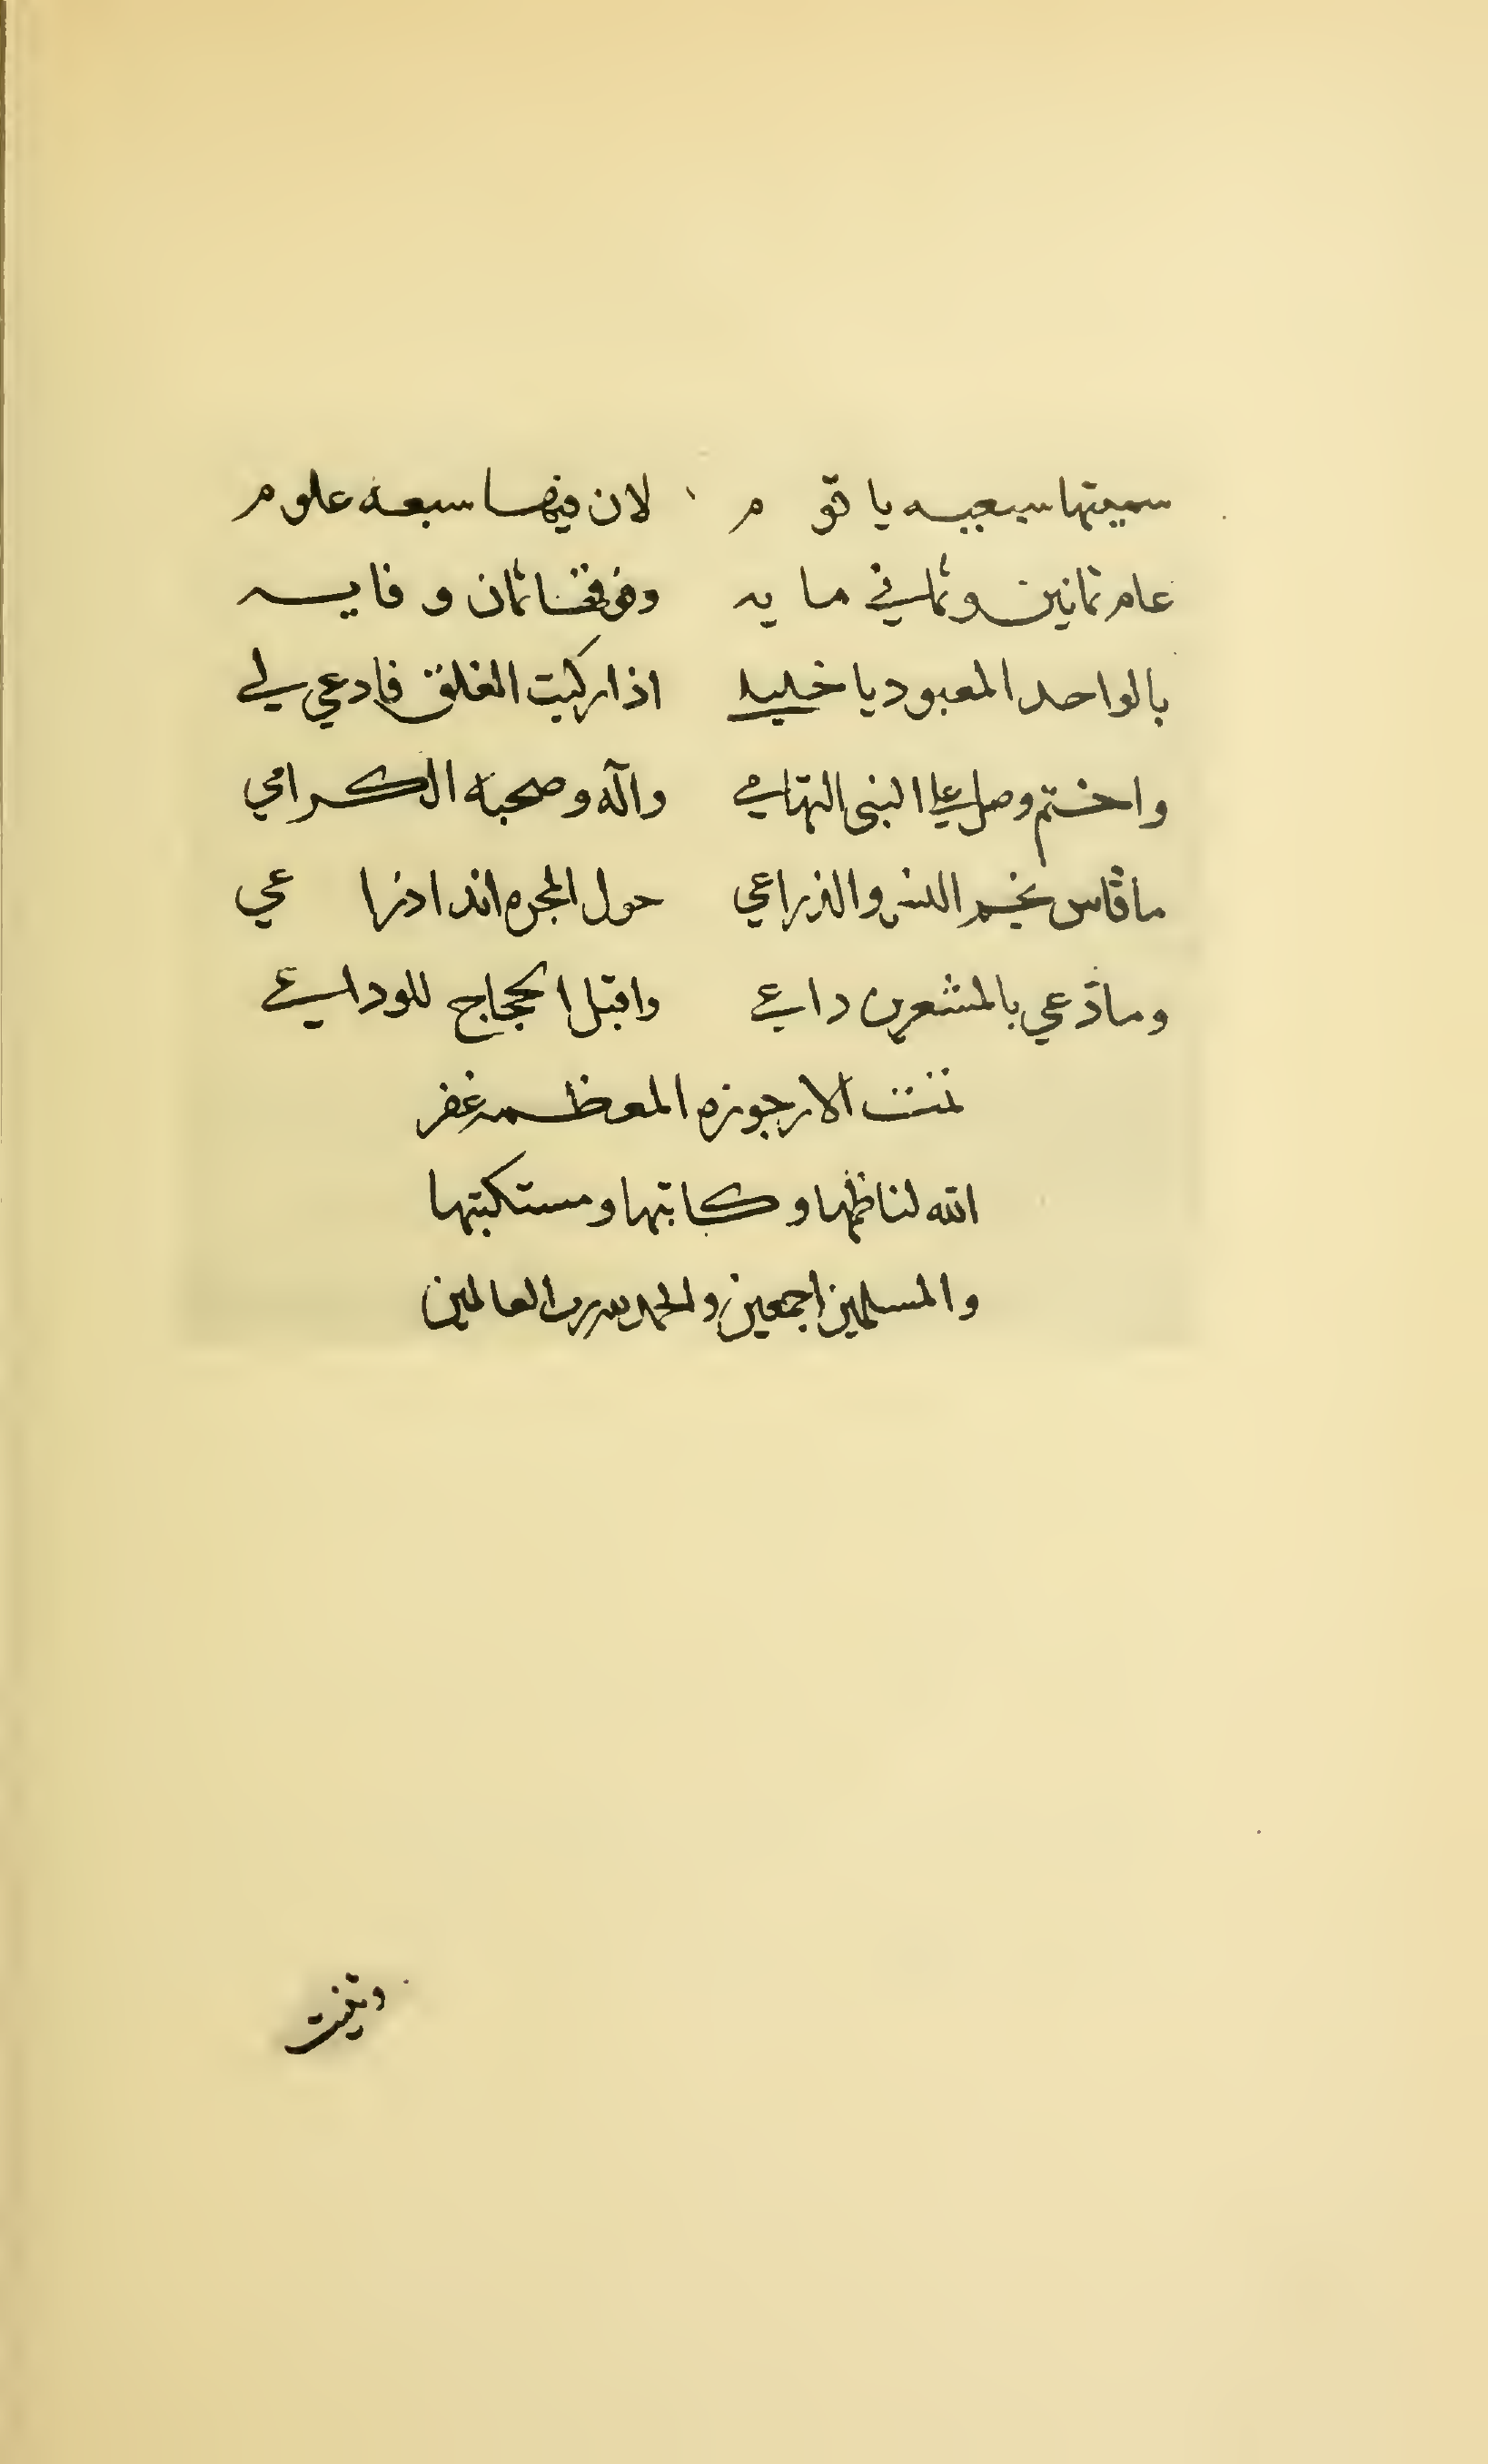 سميتها سبعيه يا قوم لان فيها سبعة علوم
عام ثمانين وثماني مايه وفوقها ثمان وفايه
بالواحد المعبود يا خليلي اذا ركبت الغلق فادعي لي
واختم وصل علي النبي التهامي وآله وصحبه الكرامي
ما قاس نجم النسر والذراعي حول المجره اذراعي
وما دعي بالمشعرين داعي واقبل الحجاج للوداعي
تمت الارجوزه المعظمه غفر
الله لناظمها وكاتبها ومستكتبها
والمسلمين اجمعين والحمد لله رب العالمين